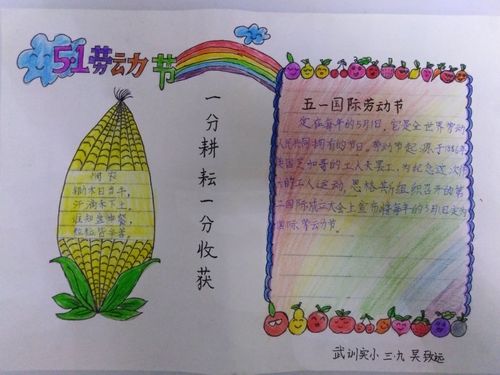 5·1劳动节
悯农
锄禾日当午,
汗滴禾下土,
谁知盘中餐,
粒粒皆辛苦
一分耕耘一分收获
五一国际劳动节
定在每年的5月1日,它是全世界劳动
人民共同拥有的节日,劳动节起源于1886年
美国芝加哥的工人大罢工,为纪念这次伟
大的工人运动,恩格斯组织召开的第
二国际成立大会上宣布将每年的5月1日定为
国际劳动节。
武训实小 三·九 吴致远